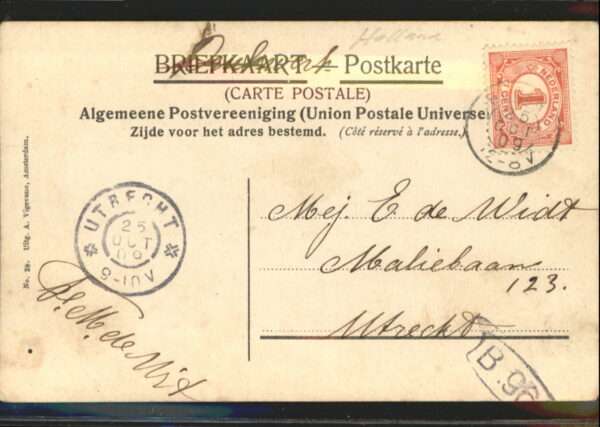 Holland
BRIEFKAART – Postkarte
Drukwerk
(CARTE POSTALE)
Algemeene Postvereeniging (Union Postale Universe
Zijde voor het adres bestemd. (Côté réservé à l'adresse.)
NEDERLAND
1
CENT
5
OCT
09
12-6V
No. 29. Uitg. A. Vigevano, Amsterdam.
UTRECHT
25
OCT
09
8-10V
Mej. E de Widt
Maliebaan
123.
Utrecht
B.96